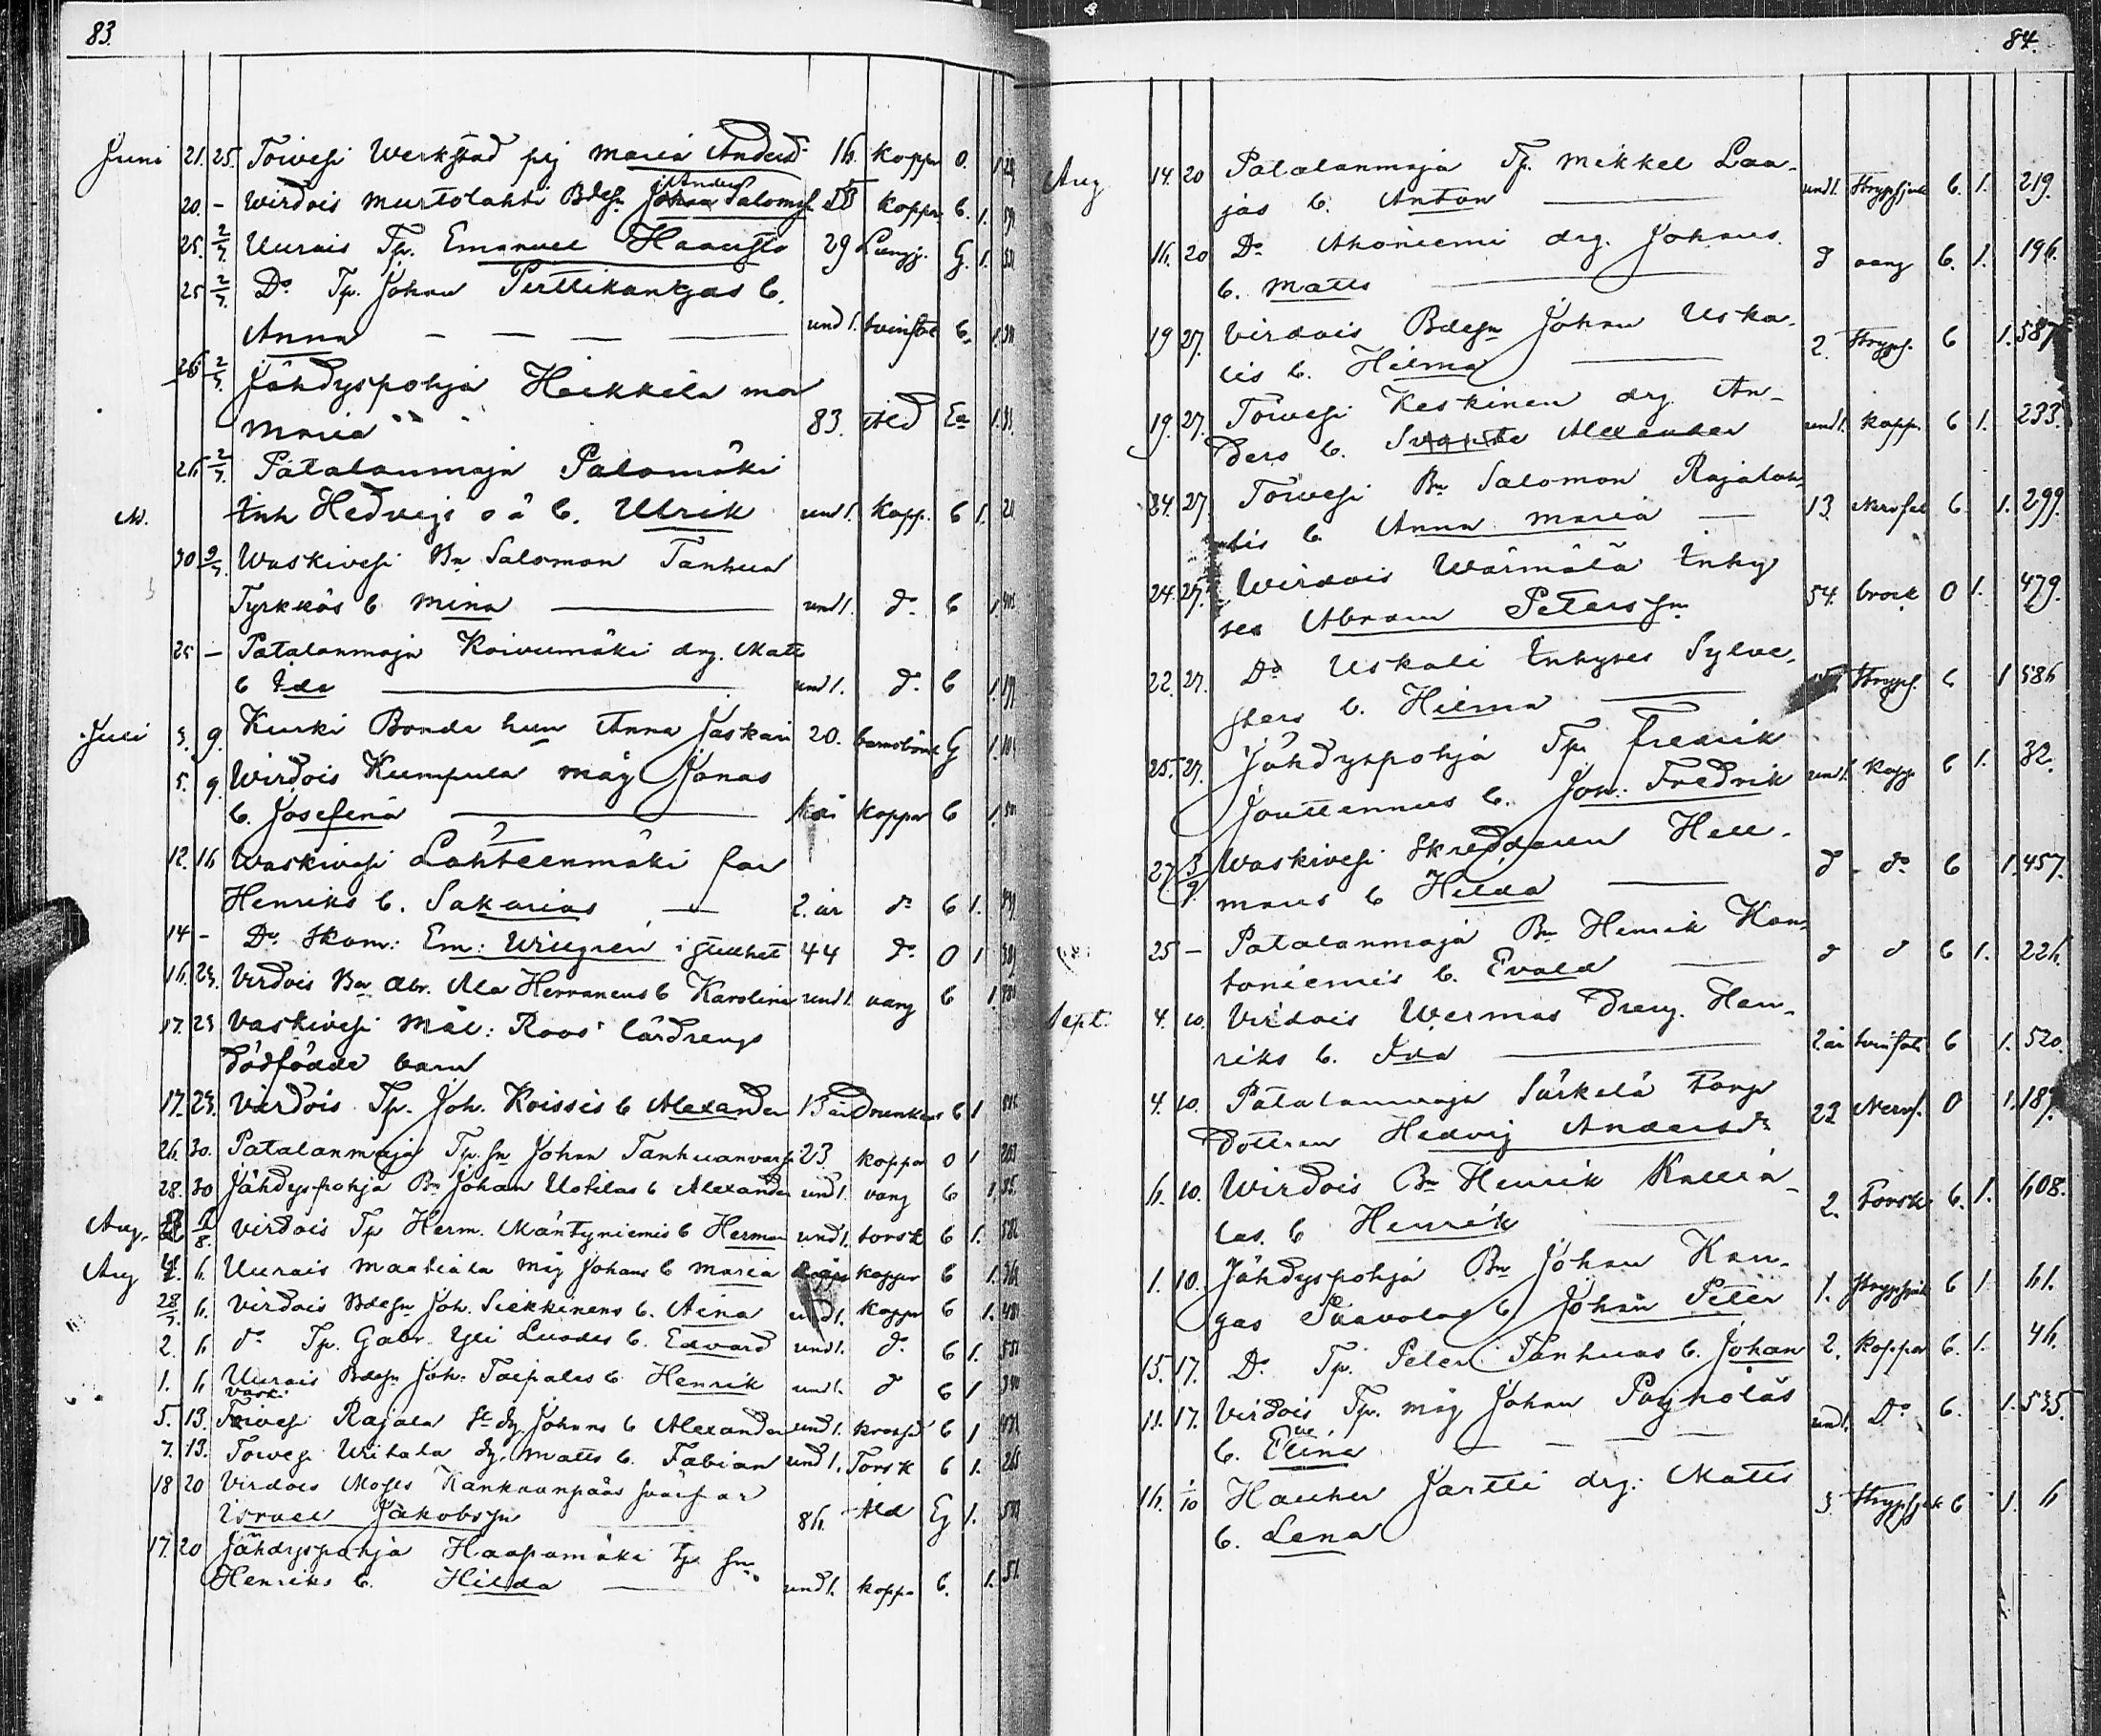 83.
Juni 21. 25. Toivesi Werkstad pig Maria Andersd 16. koppor O. 1.
20. - Wirdois Murtolahti Bdesn Johan Anders Salomsn koppor b. 1.
25. 2/7. Uurais Tp. Emanuel Haarusto 29 Lungj. G. 1.
25 2/7. Do Tp. Johan Perttikangas b.
Anna — — — — und 1. b. 1.
26. 2/7. Jähdyspohja Heikkilä mor
Maria 83. Åld Ea 1.
26 2/7. Patalanmaja Palomäki
Inh Hedvigs oä b. Ulrik und 1. Kopp. b 1.
30 9/7. Waskivesi Bn Salomon Tanhua
Tyrkkös b Mina — und 1. do b 1.
25 — Patalanmaja Koivumäki drg. Matts
b Ida — und 1. do b 1.
Juli 3. 9. Kurki Bonde hun Anna Jaskari 20. barnsbörd G 1.
5. 9. Wirdois Kumpula måg Jonas
b. Josefina — koppor b 1.
12. 16 Waskivesi Lahteenmäki far
Henriks b. Sakarias — 2. år do b 1.
14 - Do Skom: Em: Willgren i Gullhet 44 do O 1
16. 23. Virdois Bn Abr. Ala Herranens b Karolina und 1. vang b 1.
17. 23 Vaskivesi Mål: Roos' lärdrengs
dödfödde barn
17. 23. Virdois Tp. Joh. Koissis b Alexander 13 år Drunknat b 1
26. 30. Patalanmaja Tp. sn Johan Tanhuanvarsi 23. koppor O 1
28. 30 Jähdyspohja Bn Johan Uotilas b Alexander und 1. vang b 1.
Aug. 1/8. Virdois Tp Herm. Mäntyniemis b Herman und 1. torsk b 1.
Aug 6. Uurais Maatiala måg Johans b Maria koppor b 1.
28/7. 6. Virdois Bdesn Joh. Siekkinens b. Aina und 1. koppor b 1.
2. 6 do Tp. Gabr. Yli Luodes b. Edvard und 1. do b 1.
1. 6 Uurais Bdesn Joh. Taipales b. Henrik und 1. d b 1
5. 13. Toivesi Vaski Rajala St dg. Johans b Alexander und 1. b 1
7. 13. Toivesi Uritala dg. Matts b. Fabian und 1. Torsk b 1.
18 20 Virdois Moses Kankaanpääs svärfar
Israel Jakobsson 86. Åld Eg 1.
17. 20 Jähdyspohja Haapamäki Tp sn
Henriks b. Hilda — und 1. koppor b. 1. 51.
84.
Aug 14. 20 Patalanmaja Tp. Mikkel Laa-
jas b. Anton — und 1. Strypsjuk b. 1. 219.
16. 20 Do Ahoniemi drg. Johans
b. Matts — d vang b. 1. 196.
19 27. Virdois Bdesn Johan Uska-
lis b. Hilma — 2. Stryps. b 1. 587
19. 27. Toivesi Keskinen drg. An-
ders b. Svante Alexander und 1. kopp. b 1. 233.
24. 27. Toivesi Bn Salomon Rajalah-
tis b. Anna Maria — 13 Nervfeb b 1. 299.
24. 27. Wirdois Wärmälä Inhy
ses Abram Peterssn 54. brock O 1. 479.
22. 27. Do Uskali Inhyses Sylve-
sters b. Hilma — Stryps. b 1 586
25. 27. Jähdyspohja Tp. Fredrik
Jouttennus b. Joh: Fredrik und 1. kopp b 1. 32.
27 3/9. Waskivesi Skreddaren Hell-
mans b Hilda — d do b 1. 457.
25 — Patalanmaja Bn Henrik Kon-
toniemis b. Evald — d d b 1. 226.
Sept. 4. 10. Virdois Wermas Dreng. Hen-
riks b. Ida — 2 år b 1. 520.
4. 10. Patalanmaja Särkelä Torp
dottren Hedvig Andersdr 23 Nervf. O 1. 189.
6. 10. Wirdois Bn Henrik Kallia-
las. b Henrik — 2. Torsk b. 1. 608.
1. 10. Jähdyspohja Bn Johan Kan-
gas Paavolas b Johan Peter 1. Strypsjuk b 1 61.
15. 17. Do Tp. Peter Tanhuas b. Johan 2. koppor b. 1. 46.
11. 17. Virdois Tp. måg Johan Poyhöläs
b. Elina — — — und 1. Do b. 1. 535.
16. 1/10 Hauhu Jartti drg: Matts
b. Lena 3 Strypsjuk b 1. 6